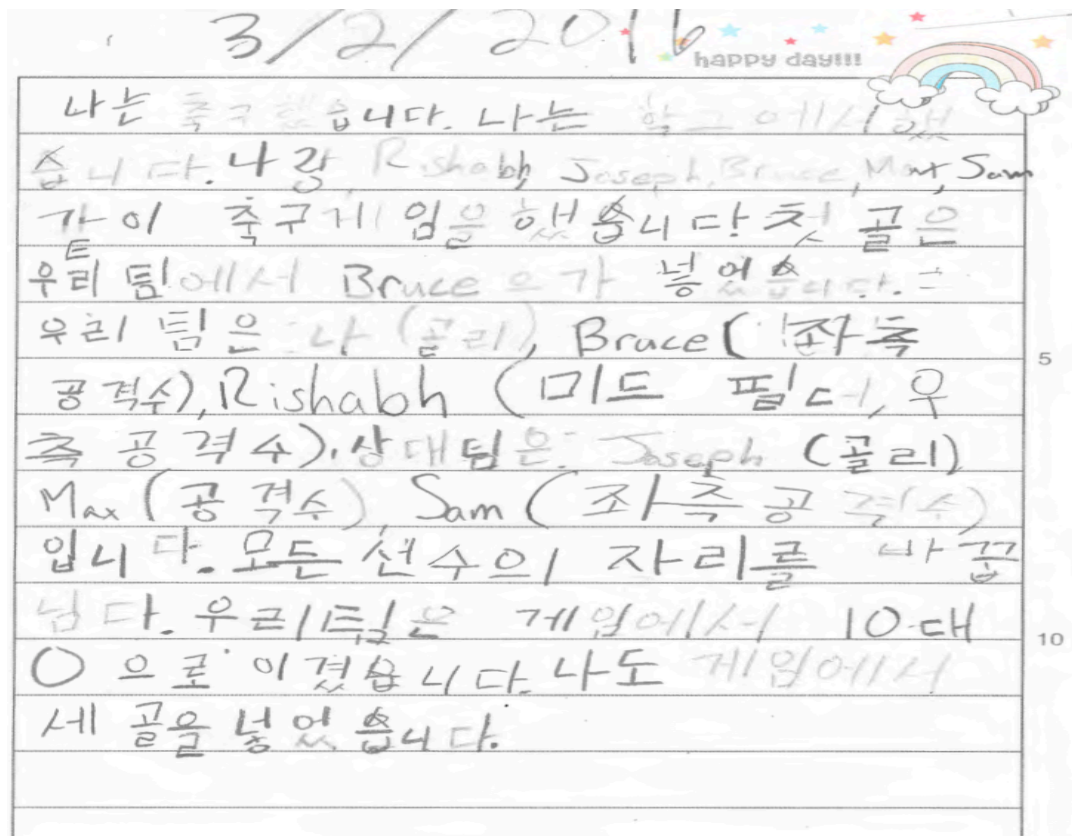 3/2/2016
happy day!!!
나는 축구했습니다. 나는 학교에서 했
습니다. 나랑, Rishabh, Joseph, Bruce, Max, Sam
가이 축구게임을 했습니다 첫 골은
우리팀에서 Bruce 으가 넣었습니다.
우리 팀은 나 (골리), Bruce (좌측
5
공격수), Rishabh (미드 필더, 우
측 공격수). 상대팀은 Joseph (골리)
Max (공격수), Sam (좌측 공격수)
입니다. 모든 선수의 자리를 바꿉
니다. 우리팀은 게임에서 10대
10
0 으로 이겼습니다. 나도 게임에서
세 골을 넣었습니다.